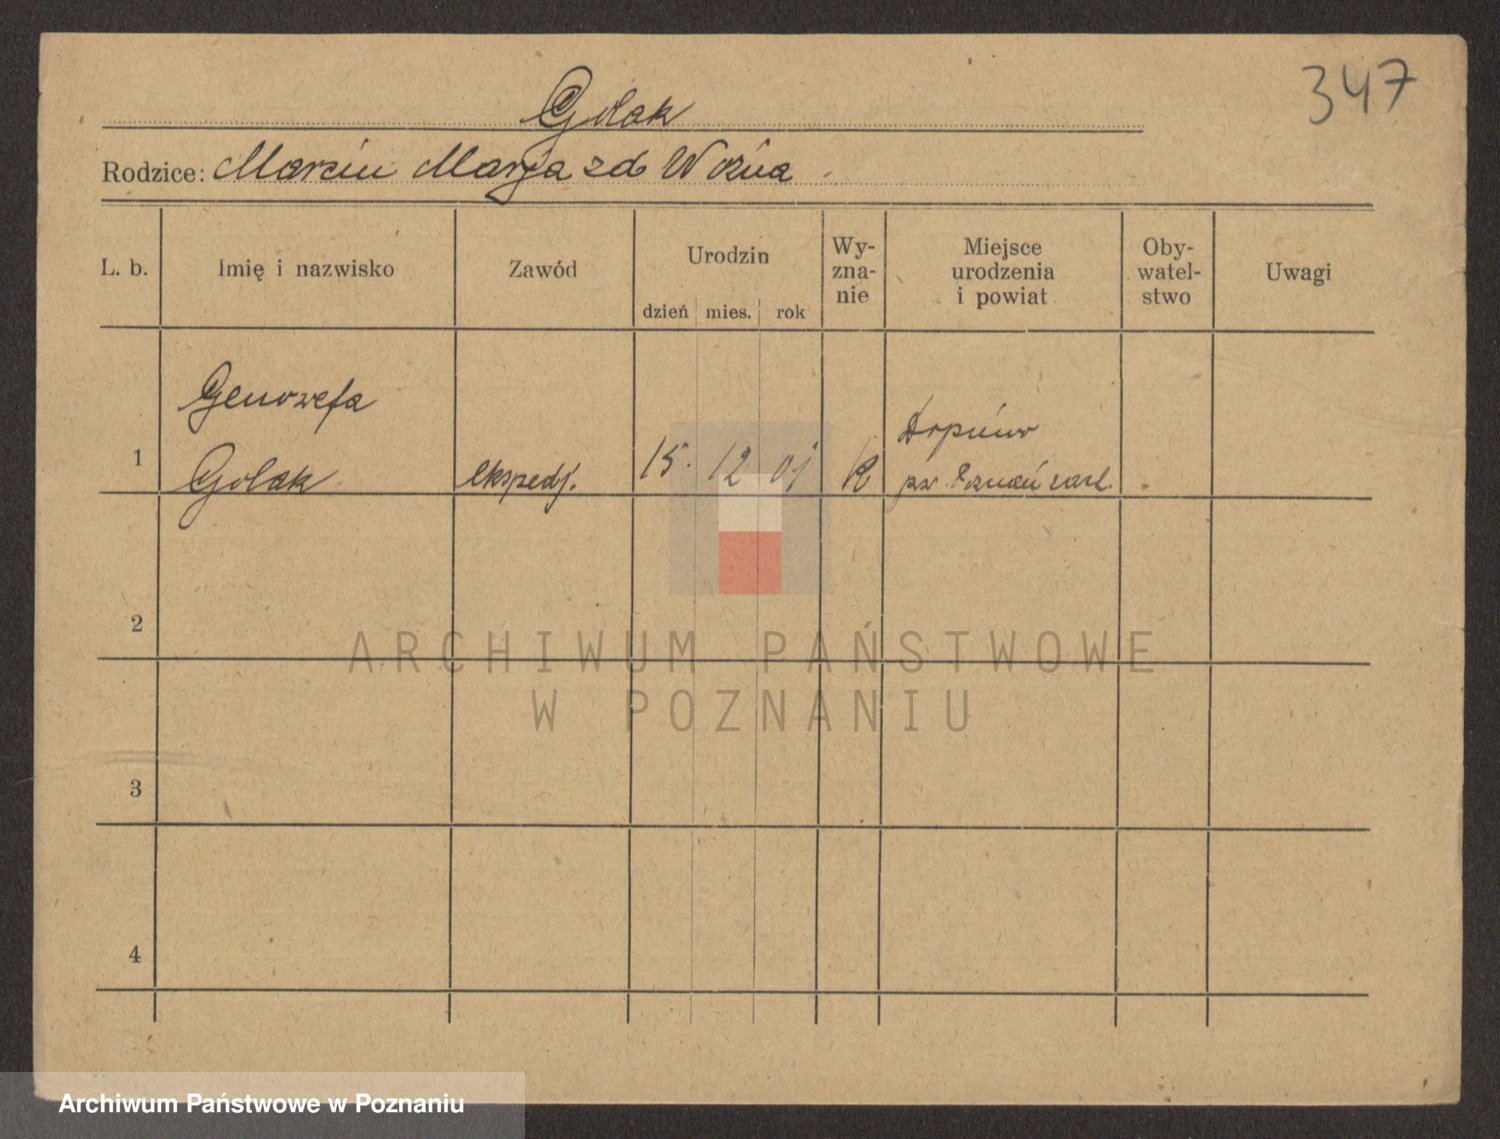 347
Golak
Rodzice: Marcin Marja zd Woźna
L. b.
Imię i nazwisko
Zawód
Urodzin
dzień mies. rok
Wy-
zna-
nie
Miejsce
urodzenia
i powiat
Oby-
watel-
stwo
Uwagi
1
Genowefa
Golak
ekspedj.
15. 12 01
R
Dopiewo
pow. Poznań zach.
2
3
4
ARCHIWUM PAŃSTWOWE
W POZNANIU
Archiwum Państwowe w Poznaniu